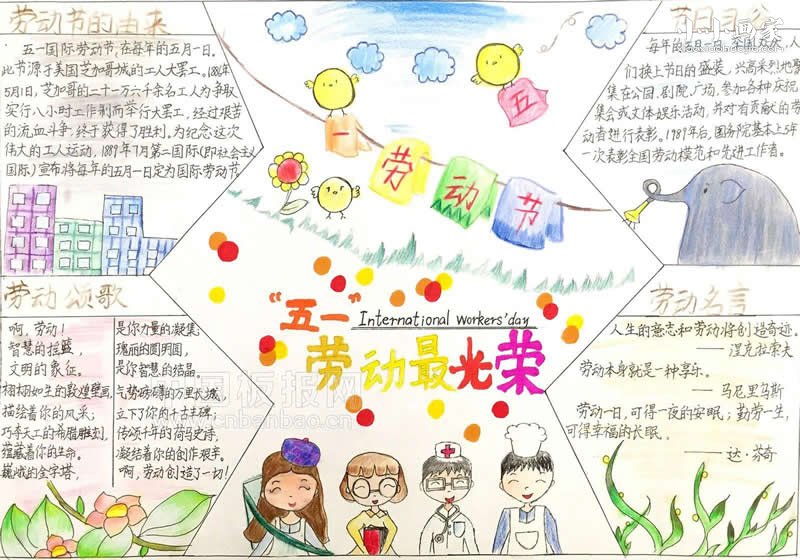 劳动节的由来
五一国际劳动节,在每年的五月一日。
此节源于美国芝加哥城的工人大罢工。1886年
5月1日,芝加哥的二十一万六千余名工人为争取
实行八小时工作制而举行大罢工,经过艰苦
的流血斗争,终于获得了胜利,为纪念这次
伟大的工人运动,1889年7月第二国际(即社会主义
国际)宣布将每年的五月一日定为国际劳动节
节日
小小画家
每年的五月一日,全国欢庆,人
们换上节日的盛装,兴高采烈地聚
集在公园、剧院、广场,参加各种庆祝
集会或文体娱乐活动,并对有贡献的劳
动者进行表彰。1989年后,国务院基本上5年
一次表彰全国劳动模范和先进工作者。
五
一
劳
动
节
“五一”International workers'day
劳动最光荣
劳动颂歌
啊,劳动!
智慧的摇篮,
文明的象征。
栩栩如生的敦煌壁画,
描绘着你的风采;
巧夺天工的希腊雕刻,
蕴藏着你的生命。
巍峨的金字塔,
是你力量的凝集;
瑰丽的圆明园,
是你智慧的结晶。
气势磅礴的万里长城,
立下了你的千古丰碑;
传颂千年的荷马史诗,
凝结着你的创作艰辛。
啊,劳动创造了一切!
劳动名言
人生的意志和劳动将创超奇迹。
——涅克拉索夫
劳动本身就是一种享乐。
——马尼里乌斯
劳动一日,可得一夜的安眠;勤劳一生,
可得幸福的长眠。
——达·芬奇
中国板报网
www.cnbanbao.cn